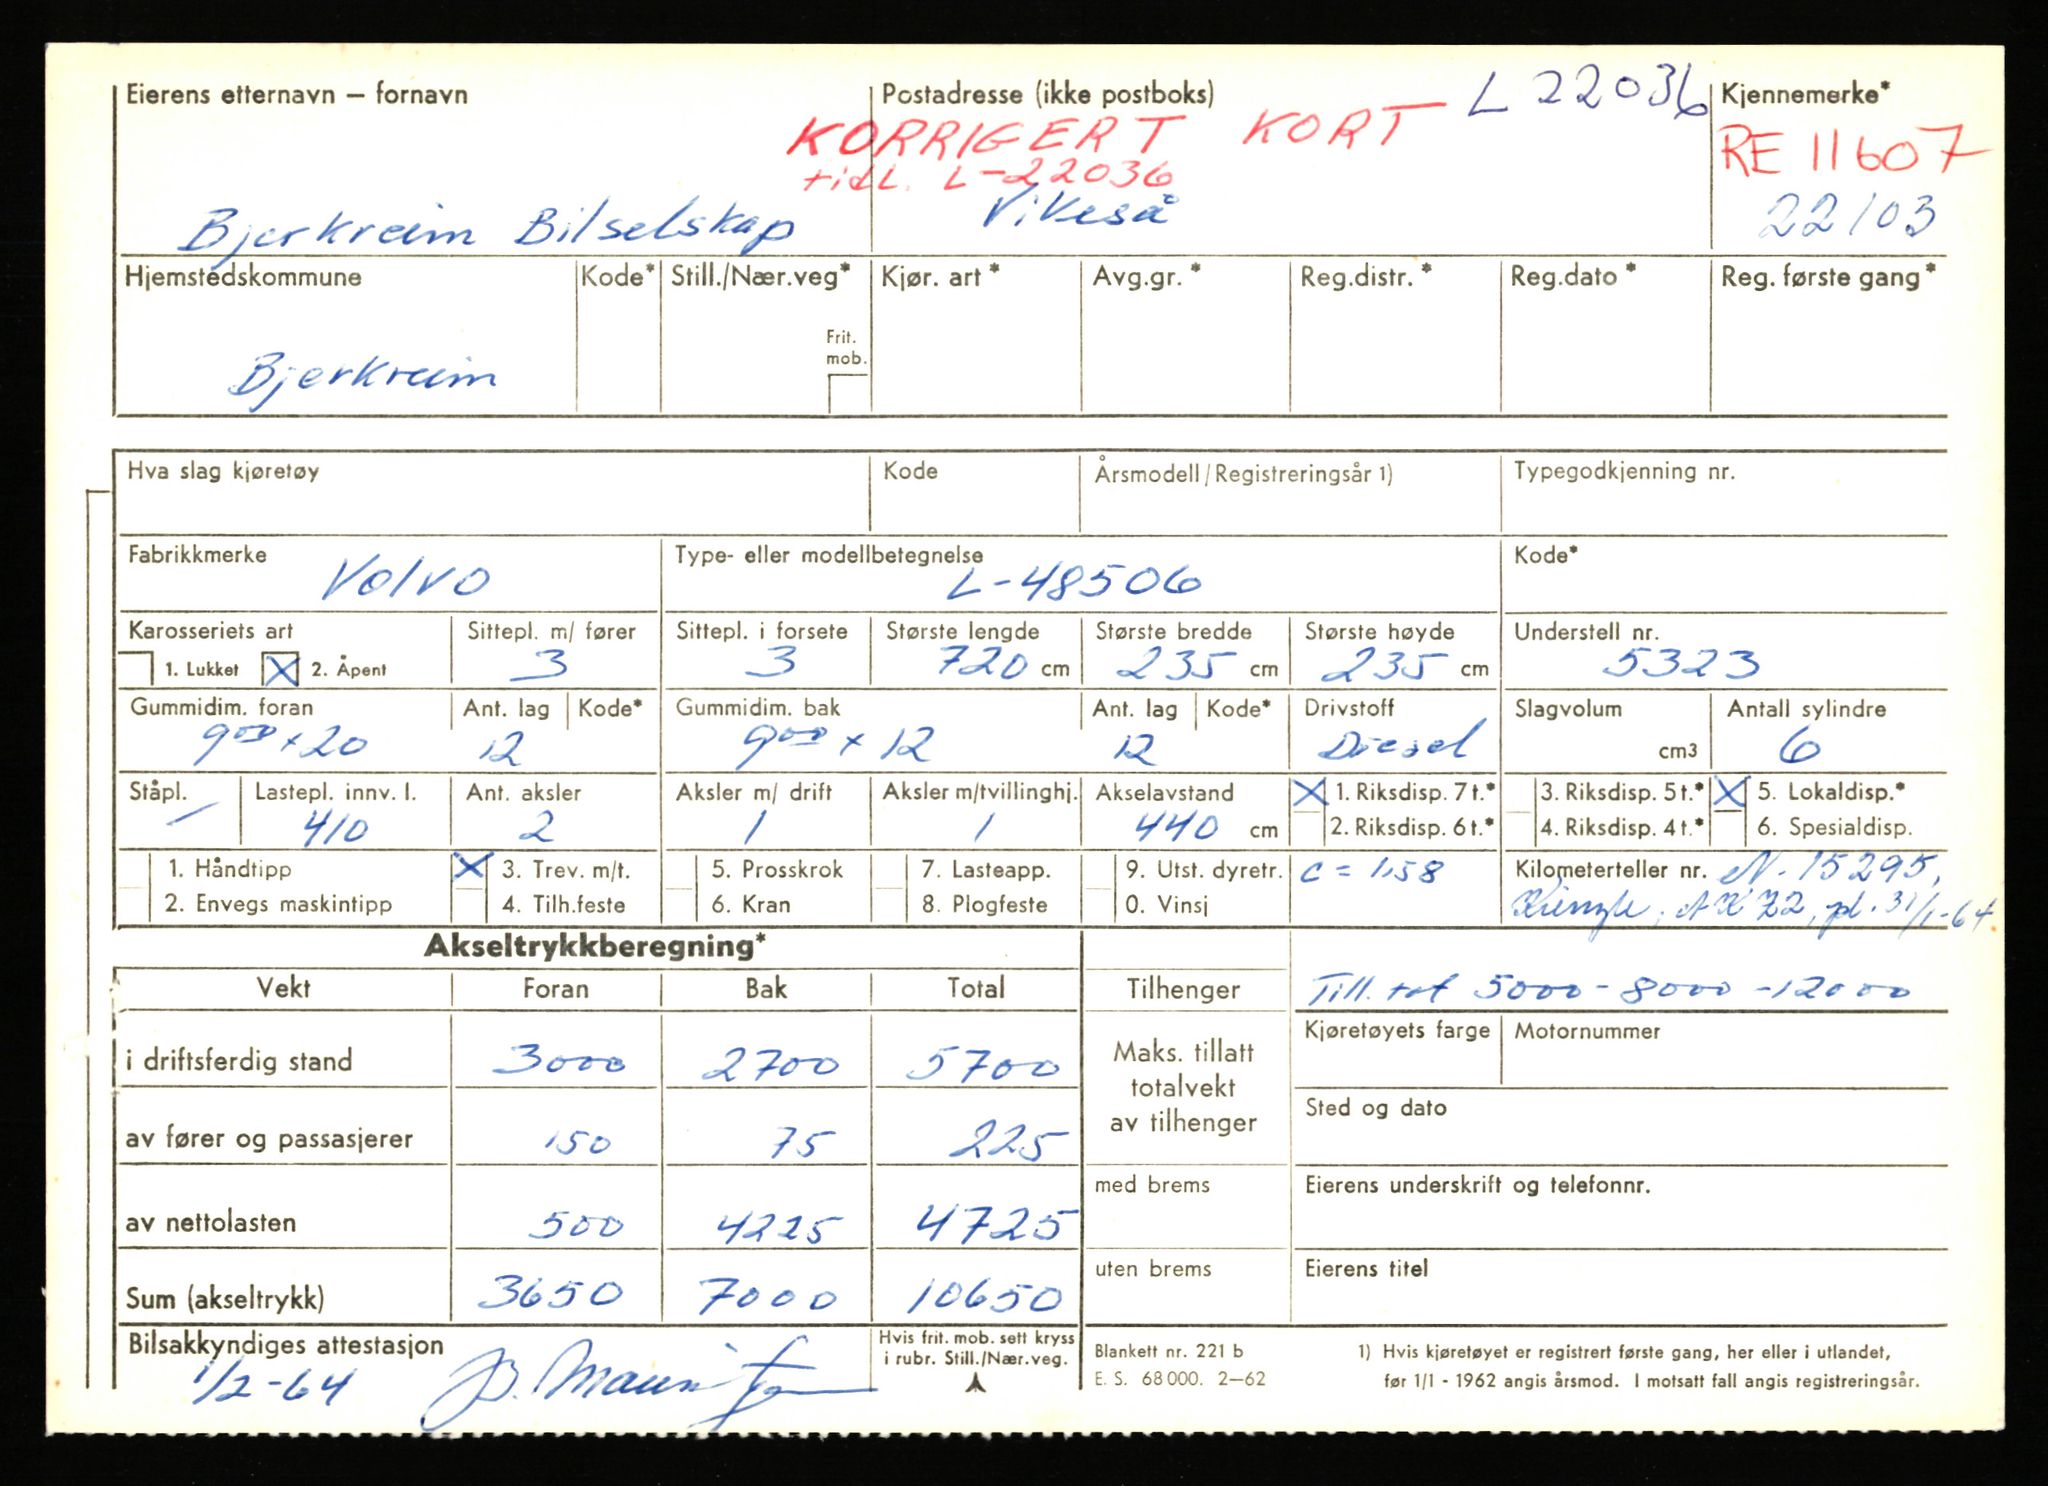 Eierens etternavn – fornavn Postadresse (ikke postboks) L 22036 Kjennemerke*
KORRIGERT KORT RE 11607
tidl. L-22036
Bjerkreim Bilselskap Vikeså 22103
Hjemstedskommune Kode* Still./Nær.veg* Kjør. art* Avg.gr.* Reg.distr.* Reg.dato* Reg. første gang*
Frit.
mob.
Bjerkreim
Hva slag kjøretøy Kode Årsmodell/Registreringsår 1) Typegodkjenning nr.
Fabrikkmerke Type- eller modellbetegnelse Kode*
Volvo L-48506
Karosseriets art Sittepl. m/ fører Sittepl. i forsete Største lengde Største bredde Største høyde Understell nr.
1. Lukket X 2. Åpent 3 3 720 cm 235 cm 235 cm 5323
Gummidim. foran Ant. lag Kode* Gummidim. bak Ant. lag Kode* Drivstoff Slagvolum Antall sylindre
900 x 20 12 900 x 12 12 Diesel cm3 6
Ståpl. Lastepl. innv. l. Ant. aksler Aksler m/ drift Aksler m/tvillinghj. Akselavstand X 1. Riksdisp. 7 t.* 3. Riksdisp. 5 t.* X 5. Lokaldisp.*
/ 410 2 1 1 440 cm 2. Riksdisp. 6 t.* 4. Riksdisp. 4 t.* 6. Spesialdisp.
1. Håndtipp X 3. Trev. m/t. 5. Prosskrok 7. Lasteapp. 9. Utst. dyretr. c = 1,58 Kilometerteller nr. N. 15295,
2. Envegs maskintipp 4. Tilh.feste 6. Kran 8. Plogfeste 0. Vinsj Kienzle, pl. 31/1-64
Akseltrykkberegning*
Vekt Foran Bak Total Tilhenger Till. tot 5000-8000-12000
Kjøretøyets farge Motornummer
i driftsferdig stand 3000 2700 5700 Maks. tillatt
totalvekt
av tilhenger
Sted og dato
av fører og passasjerer 150 75 225
med brems Eierens underskrift og telefonnr.
av nettolasten 500 4225 4725
uten brems Eierens titel
Sum (akseltrykk) 3650 7000 10650
Bilsakkyndiges attestasjon Hvis frit. mob. sett kryss
i rubr. Still./Nær.veg.
1/2-64
Blankett nr. 221 b
E. S. 68 000. 2–62
1) Hvis kjøretøyet er registrert første gang, her eller i utlandet,
før 1/1 - 1962 angis årsmod. I motsatt fall angis registreringsår.